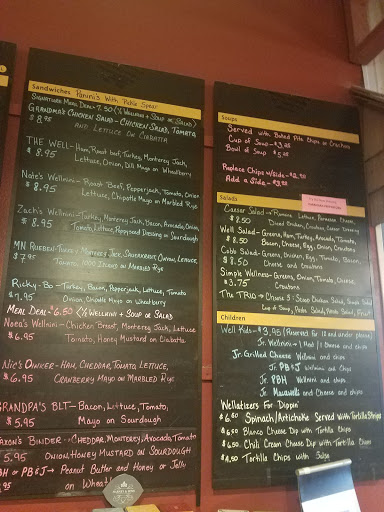 Sandwiches Panini's With Pickle Spear
Signature Meal Deal - 7.50 (½ Wellnini + Soup or Salad)
Grandma's Chicken Salad - Chicken Salad, Tomato,
$8.95 and Lettuce on Ciabatta
THE WELL - Ham, Roast beef, Turkey, Monterey Jack,
$8.95 Lettuce, Onion, Dill Mayo on Wheatberry
Nate's Wellnini - Roast Beef, Pepperjack, Tomato, Onion
$8.95 Lettuce, Chipotle Mayo on Marbled Rye
Zach's Wellnini - Turkey, Monterey Jack, Bacon, Avocado, Onion,
$8.95 Tomato, Lettuce, Dressing on Sourdough
MN Rueben - Monterey Jack, Sauerkraut, Onion, Lettuce,
$7.95 Tomato, 1000 Island on Marbled Rye
Ricky-Bo - Turkey, Bacon, Pepperjack, Lettuce, Tomato
$7.95 Onion, Chipotle Mayo on Wheatberry
Meal Deal - 6.50 (½ Wellnini + Soup or Salad
Noea's Wellnini - Chicken Breast, Monterey Jack, Lettuce
$6.95 Tomato, Honey Mustard on Ciabatta
Nic's Oinker - Ham, Cheddar, Tomato, Lettuce,
$6.95 Cranberry Mayo on Marbled Rye
GRANDPA'S BLT - Bacon, Lettuce, Tomato,
$5.95 Mayo on Sourdough
Binder - Cheddar, Monterey, Avocado, Tomato
5.95 Onion, Honey Mustard on Sourdough
BH or PB&J → Peanut Butter and Honey or Jelly
.95 on Wheat
Soups
Served with Baked Pita Chips or Crackers
Cup of Soup - $3.95
Bowl of Soup - $5.95
Replace Chips w/side - $2.50
Add a Side - $3.95
Salads
Caesar Salad - Romaine Lettuce, Parmesan Cheese,
$7.50 Diced Chicken, Croutons, Caesar Dressing
Well Salad - Greens, Ham, Turkey, Avocado, Tomato,
$8.50 Bacon, Cheese, Egg, Onion, Croutons
Cobb Salad - Greens, Chicken, Egg, Tomato, Bacon,
$8.50 Cheese and Croutons
Simple Wellness - Greens, Onion, Tomato, Cheese,
$3.75 Croutons
The TRIO → Choose 3: Scoop Chicken Salad,
Cup of Soup, Pasta Salad, Potato Salad, Fruit
Children
Well Kids - $3.95 (Reserved for 12 and under please)
Jr. Wellnini → 1 Meat / 1 Cheese and chips
Jr. Grilled Cheese Wellnini and chips
Jr. PB&J Wellnini and Chips
Jr. PBH Wellnini and chips
Jr. and Cheese and chips
Wellatizers For Dippin'
$6.50 Spinach/Artichoke Served with Tortilla Strips
$6.50 Blanco Cheese Dip with Tortilla Chips
$6.50 Chili Cream Cheese Dip with Tortilla Chips
$4.50 Tortilla Chips with Salsa